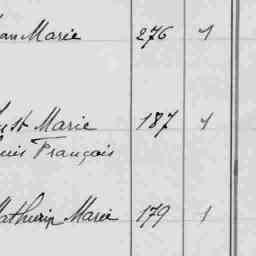 an Marie 276 1
ust Marie 187 1
uis François
athurin Marie 179 1